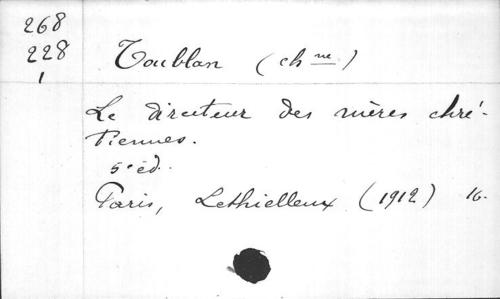 268
228
1
Toublan (ch ne)
Le directeur des mères chré-
tiennes.
5e éd.
Paris, Lethielleux (1912) 16.